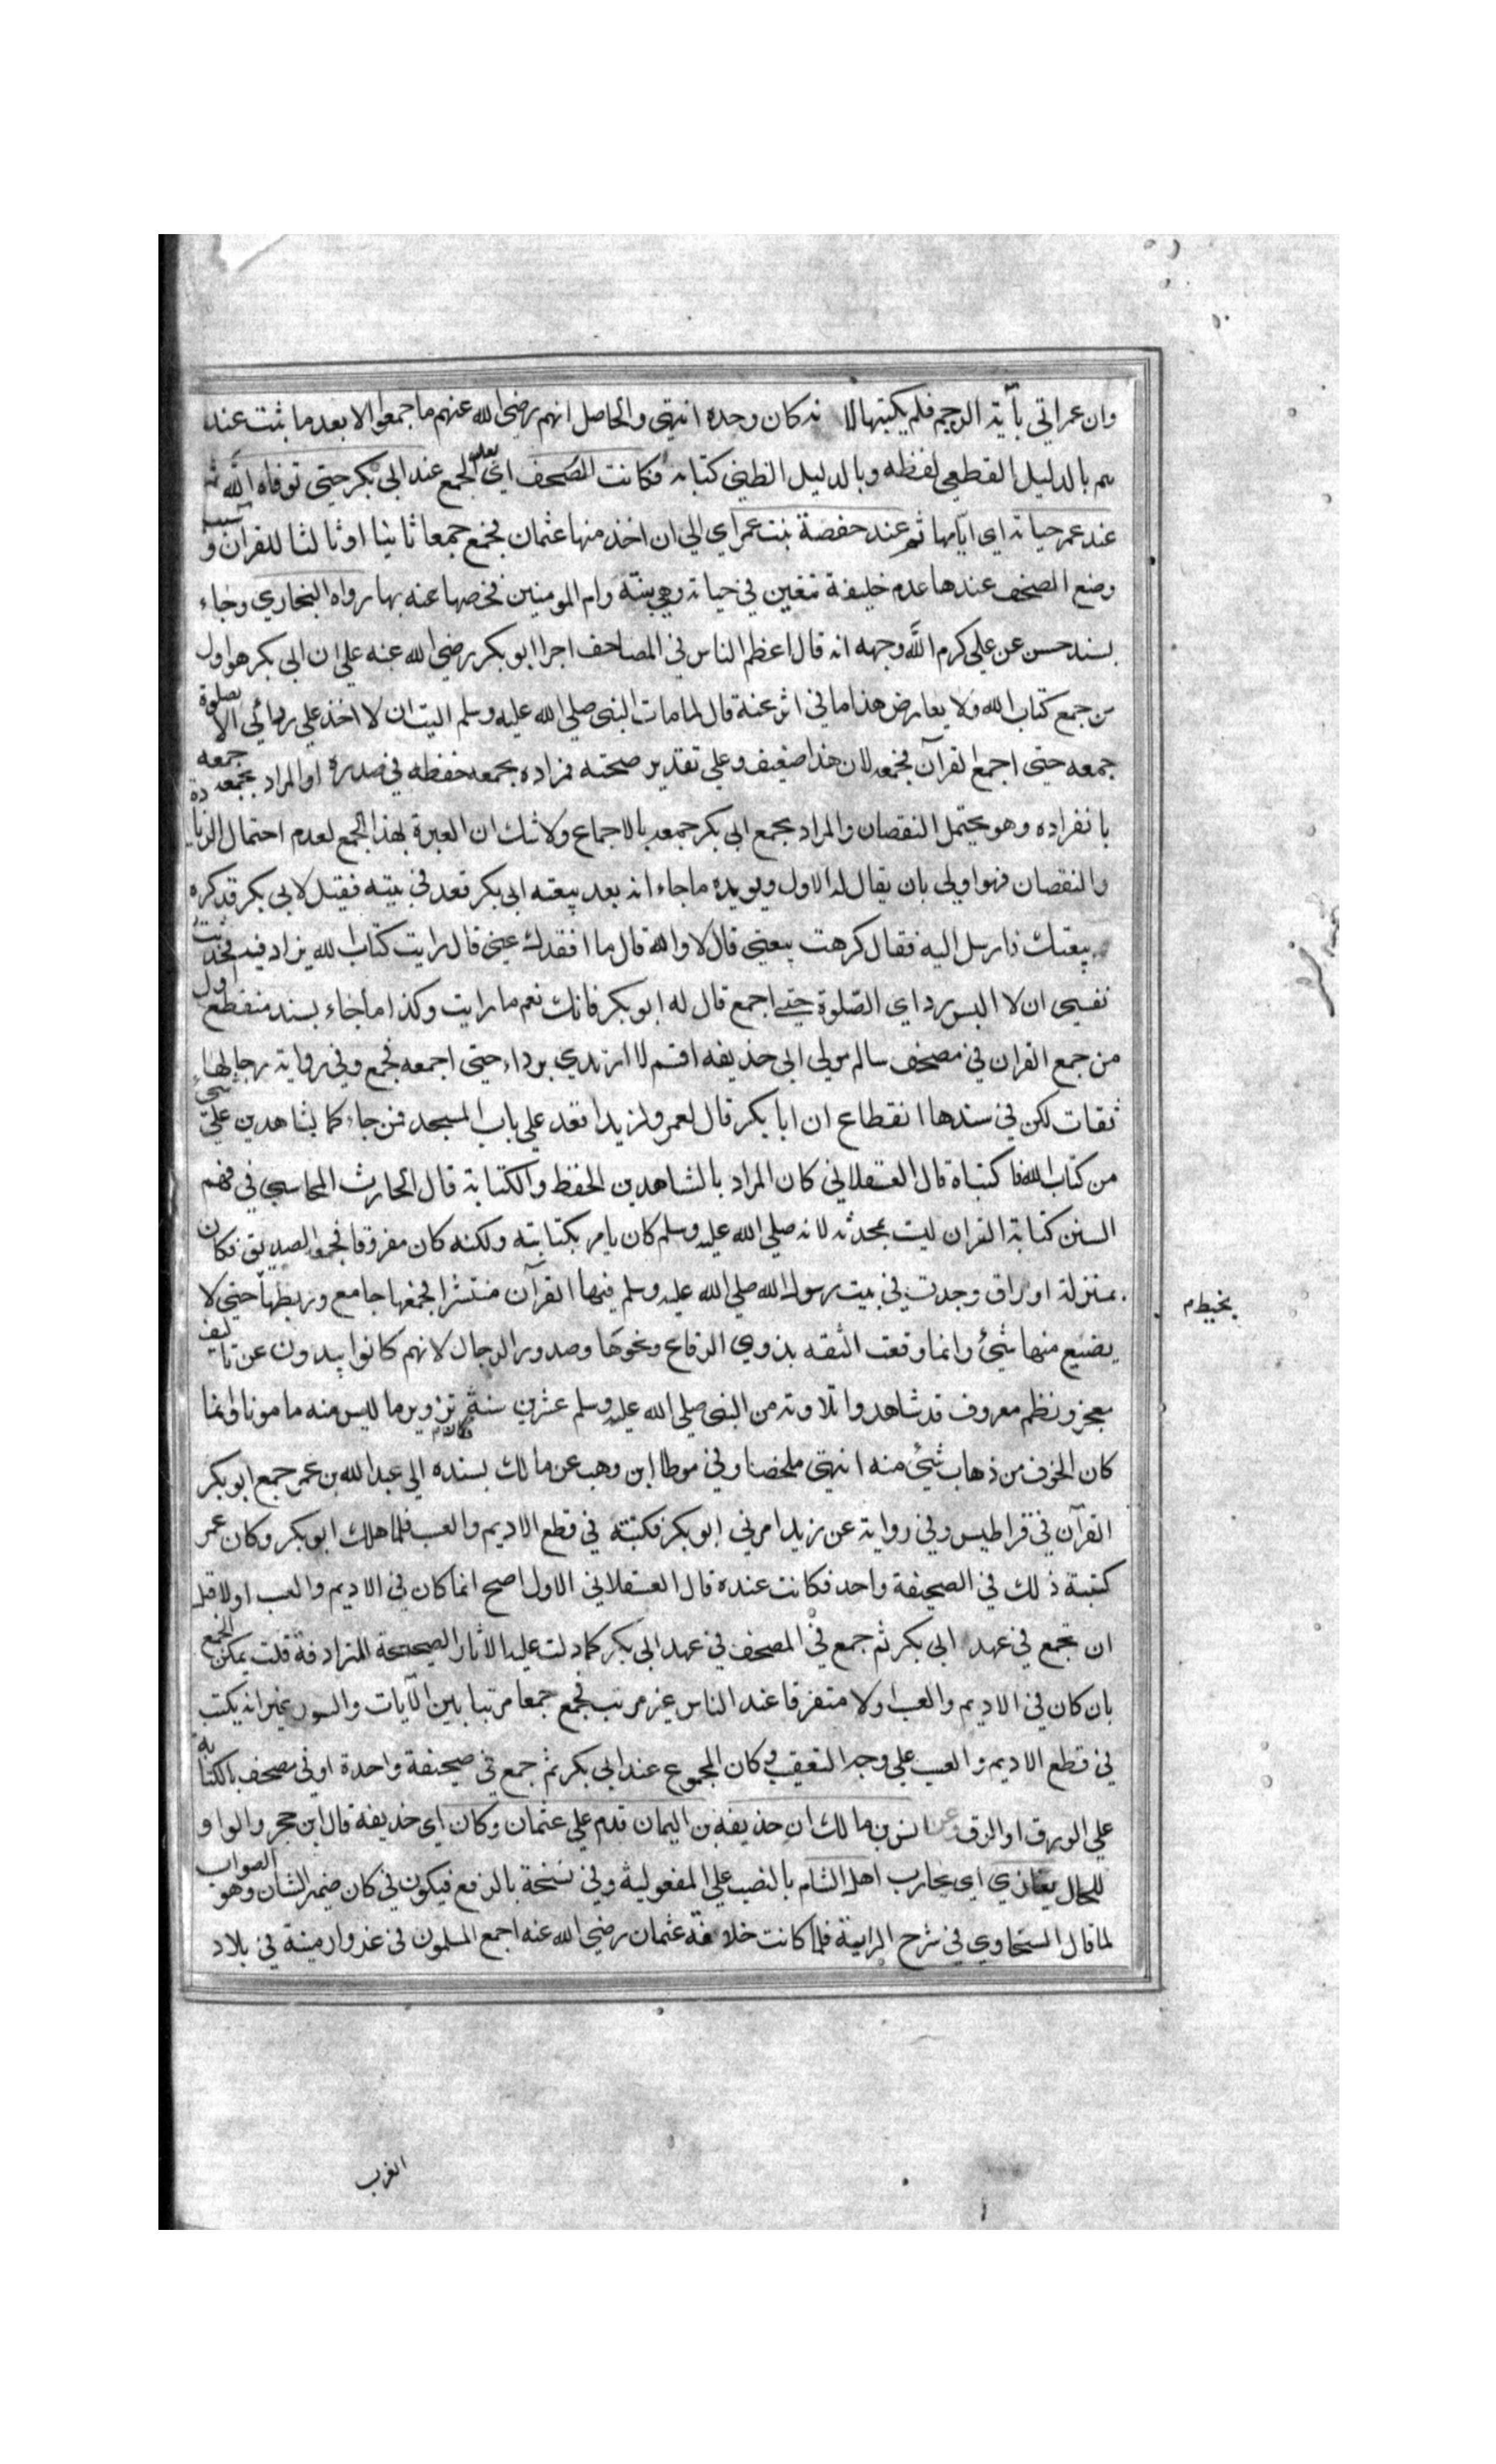 وان عمر اتي بآية الرجم فلم يكتبها لا نه كان وحده انتهي والحاصل انهم رضي الله عنهم ما جمعوا الا بعد ما ثبت عند
هم بالدليل القطعي لفظه وبالدليل الظني كتابة فكانت الصحف اي بعد الجمع عند ابي بكر حتي توفاه الله ثم
عند عمر حياته اي ايامها ثم عند حفصة بنت عمر اي الي ان اخذ منها عثمان فجمع جمعا ثانيا او ثالثا للقرآن وسبب
وضع المصحف عندها عدم خليفة متعين في حياته وهي بنته وام المومنين فخصها عنه بها رواه البخاري وجاء
بسند حسن عن علي كرم الله وجهه انه قال اعظم الناس في المصاحف اجرا ابو بكر رضي الله عنه علي ان ابي بكر هو اول
من جمع كتاب الله ولا يعارض هذا ما في اثر عنه قال لما مات النبي صلي الله عليه وسلم اليت ان لا اخذ علي ردائي الا لصلوة
جمعه حتي اجمع القرآن فجمعه لان هذا ضعيف وعلي تقدير صحته فمراده بجمعه حفظه في صدره او المراد بجمعه جمعه
بانفراده وهو يحتمل النقصان والمراد بجمع ابي بكر جمعه بالاجماع ولا شك ان العبرة بهذا الجمع لعدم احتمال الزيادة
والنقصان فهو اولي بان يقال له الاول ويويده ما جاء انه بعد بيعته ابي بكر قعد في بيته فقيل لابي بكر قد كره
بيعتك فارسل اليه فقال كرهت بيعتي قال لا والله قال ما افقدك عني قال رايت كتاب الله يزاد فيه فحدثت
نفسي ان لا البس رداي الصلوة حتي اجمع قال له ابو بكر فانك نعم ما رايت وكذا ما جاء بسند منقطع اول
من جمع القران في مصحف سالم مولي ابي حذيفه اقسم لا ارتدي برداء حتي اجمعه فجمع وفي رواية رجالها
ثقات لكن في سندها انقطاع ان ابا بكر قال لعمر ولزيد اقعد علي باب المسجد فمن جاءكما بشاهدين علي شئ
من كتاب الله فاكتباه قال العسقلاني كان المراد بالشاهدين الحفظ والكتابة قال الحارث المحاسبي في فهم
السنن كتابة القران ليست بمحدثه لانه صلي الله عليه وسلم كان يامر بكتابته ولكنه كان مفرقا فجمعه الصديق فكان
بمنزلة اوراق وجدت في بيت رسول الله صلي الله عليه وسلم فيها القرآن منتشر الجمعها جامع وربطها حتي لا
بخيط م
يضيع منها شئ وانما وقعت الثقه بذوي الرقاع ونحوها وصدور الرجال لانهم كانوا يبدون عن تاليف
معجز ونظم معروف قد شاهدوا تلاوته من النبي صلي الله عليه وسلم عشرين سنة فكان تزوير ما ليس منه مامونا وانما
كان الخوف من ذهاب شئ منه انتهي ملخصا وفي موطا ابن وهب عن مالك بسنده الي عبد الله بن عمر جمع ابو بكر
القرآن في قراطيس وفي رواية عن زيد امرني ابو بكر فكتبته في قطع الاديم والعسب فلما هلك ابو بكر وكان عمر
كتبته ذلك في الصحيفة واحد فكانت عنده قال العسقلاني الاول اصح انما كان في الاديم والعسب اولا قبل
ان تجمع في عهد ابي بكر ثم جمع في المصحف في عهد ابي بكر كما دلت عليه الاثار الصحيحة المترادفة قلت يمكن الجمع
بان كان في الاديم والعسب اولا متفرقا عند الناس غير مرتب فجمع جمعا مرتبا بين الآيات والسور غير انه يكتب
في قطع الاديم والعسب علي وجه التعقيب وكان المجموع عند ابي بكر ثم جمع في صحيفة واحدة او في مصحف بالكتابة
علي الورق او الرق وعن انس بن مالك ان حذيفه بن اليمان قدم علي عثمان وكان اي حذيفه قال ابن حجر والواو
للحال يغازي اي يحارب اهل الشام بالنصب علي المفعولية وفي نسخة بالرفع فيكون في كان ضمير الشان وهو الصواب
لما قال السخاوي في شرح الرابية فلما كانت خلافة عثمان رضي الله عنه اجمع المسلمون في غزو ارمينة في بلاد
الغرب